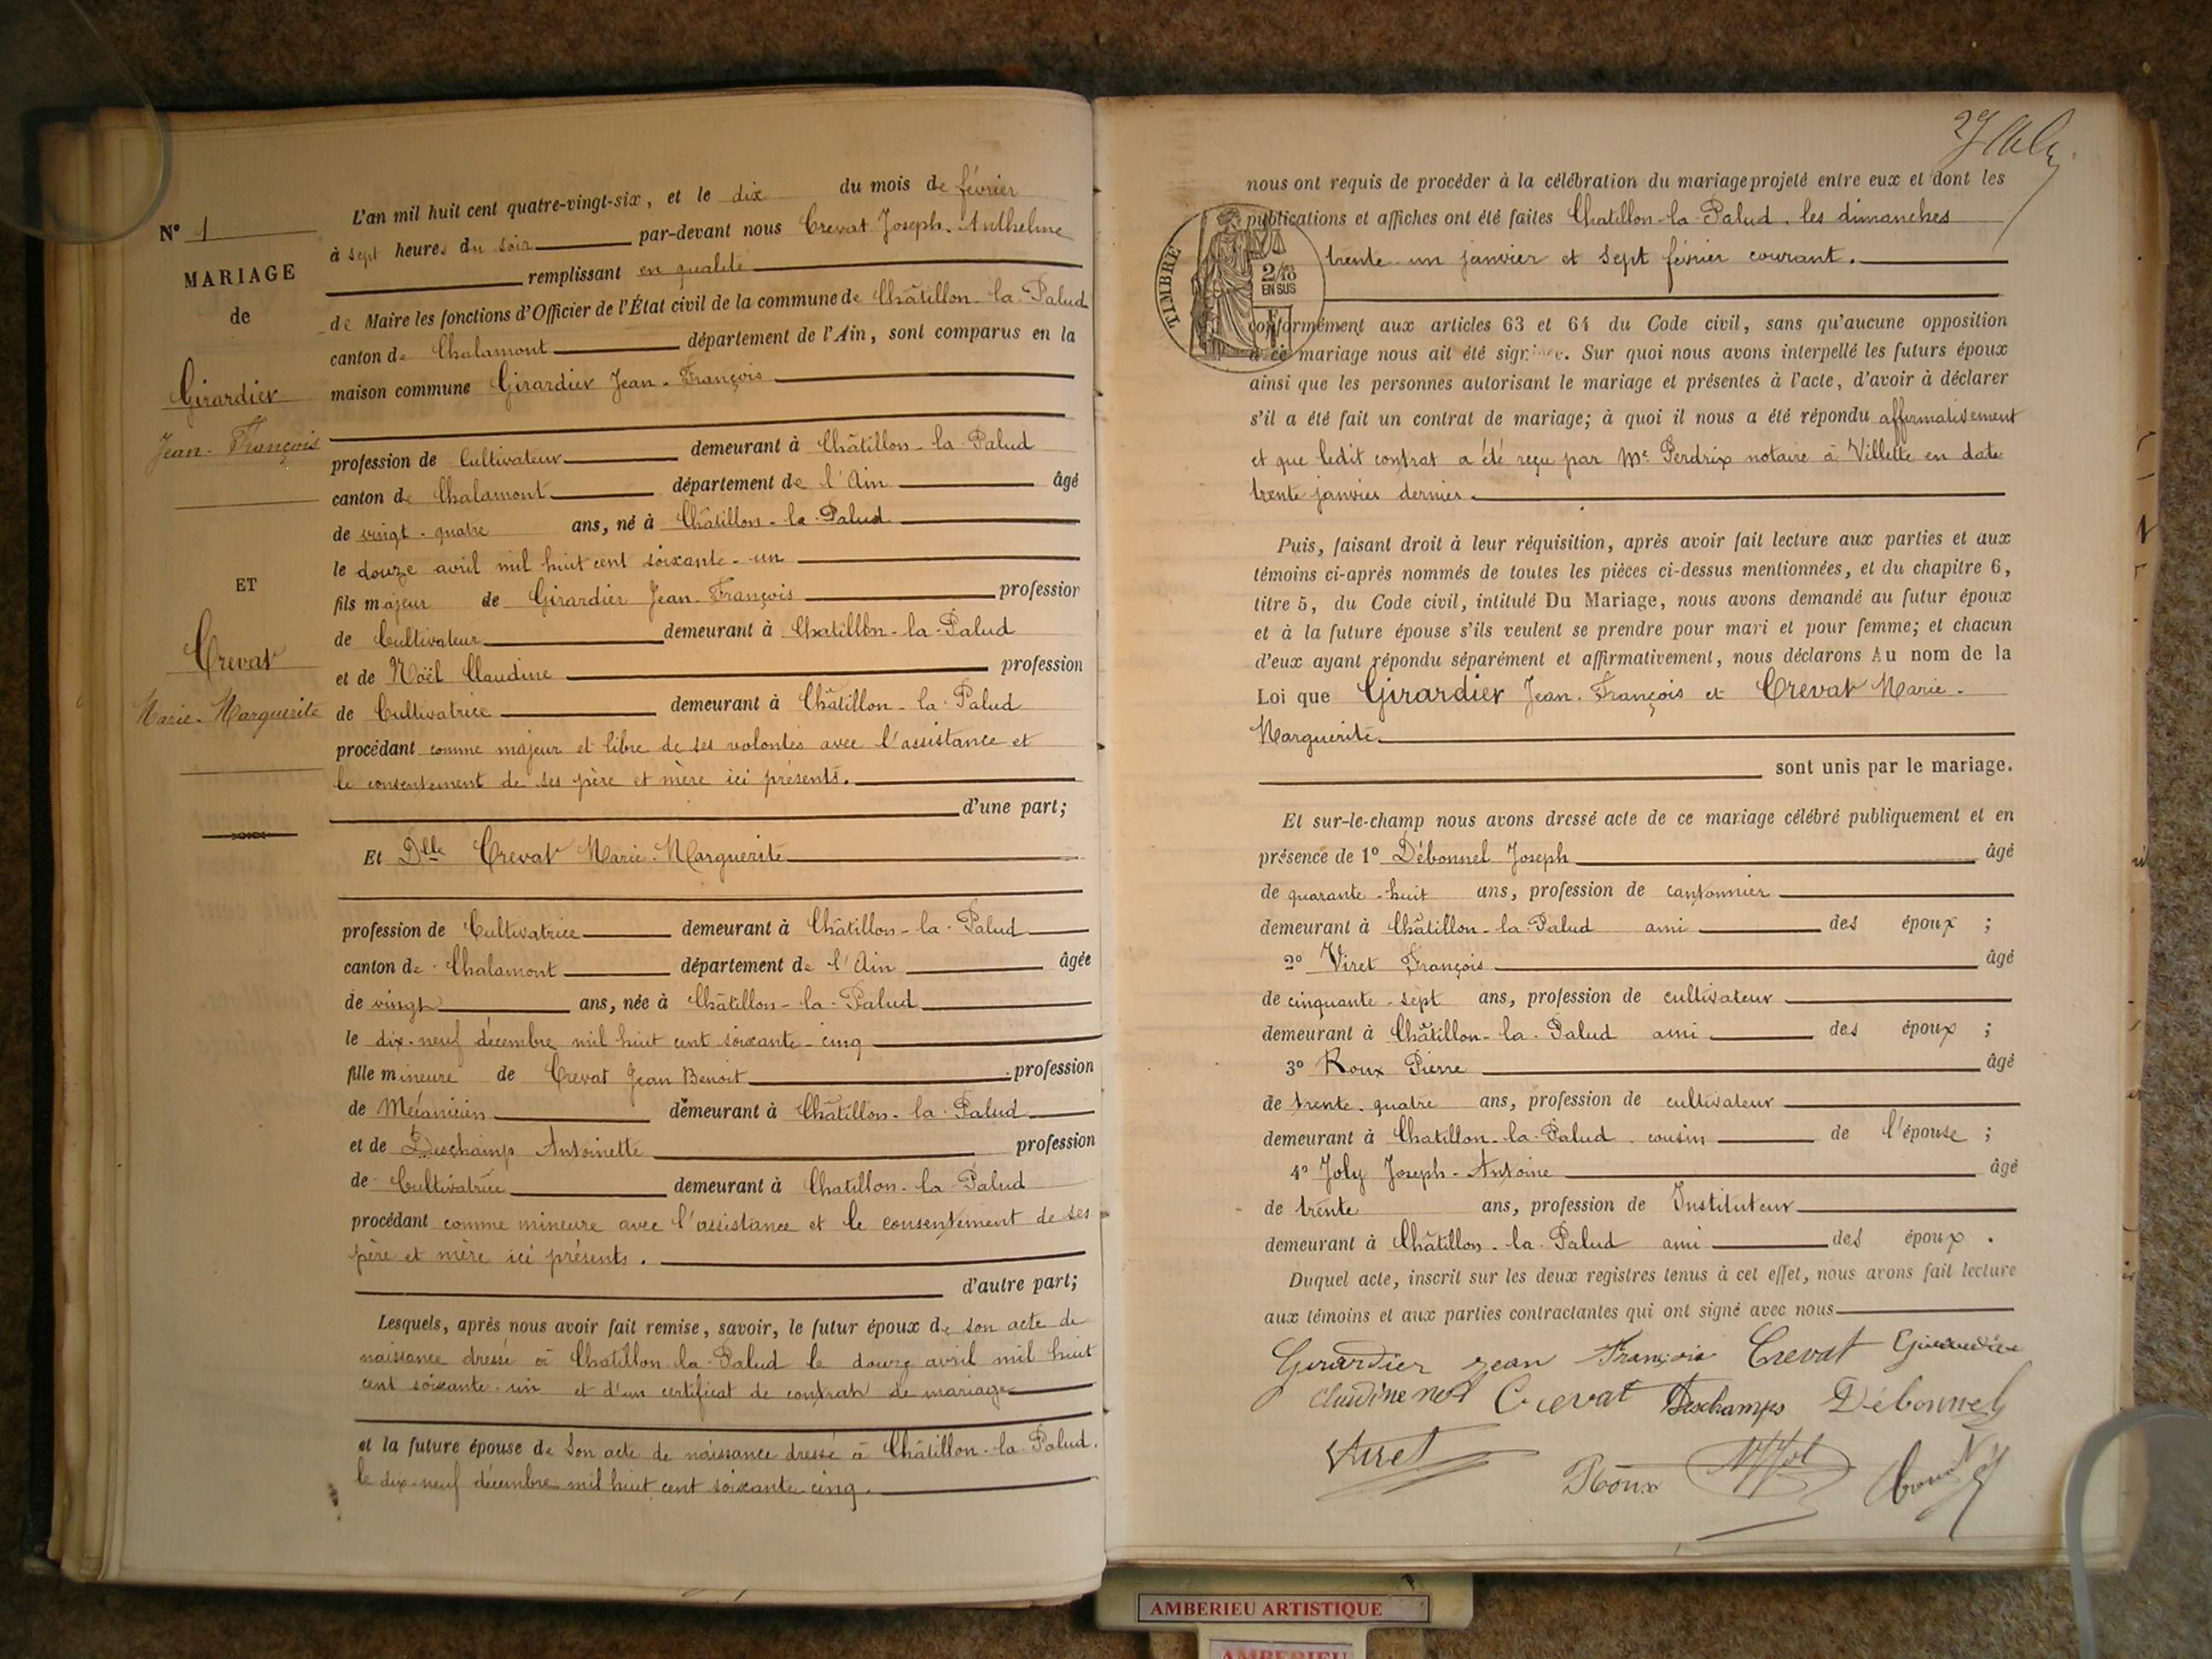 N° 1
MARIAGE
de
Girardier
Jean-François
ET
Crevat
Marie-Marguerite
L'an mil huit cent quatre-vingt-six, et le dix du mois de février
à sept heures du soir par-devant nous Crevat Joseph-Anthelme
remplissant en qualité
de Maire les fonctions d'Officier de l'État civil de la commune de Châtillon-la-Palud
canton de Chalamont département de l'Ain, sont comparus en la
maison commune Girardier Jean-François
profession de Cultivateur demeurant à Châtillon-la-Palud
canton de Chalamont département de l'Ain âgé
de vingt-quatre ans, né à Châtillon-la-Palud
le douze avril mil huit cent soixante-un
fils majeur de Girardier Jean-François profession
de Cultivateur demeurant à Chatillon-la-Palud
et de Noël Claudine profession
de Cultivatrice demeurant à Châtillon-la-Palud
procédant comme majeur et libre de ses volontés avec l'assistance et
le consentement de ses père et mère ici présents.
d'une part;
Et Dlle Crevat Marie-Marguerite
profession de Cultivatrice demeurant à Châtillon-la-Palud
canton de Chalamont département de l'Ain âgée
de vingt ans, née à Châtillon-la-Palud
le dix-neuf décembre mil huit cent soixante-cinq
fille mineure de Crevat Jean Benoit profession
de Mécanicien demeurant à Châtillon-la-Palud
et de Deschamp Antoinette profession
de Cultivatrice demeurant à Chatillon-la-Palud
procédant comme mineure avec l'assistance et le consentement de ses
père et mère ici présents.
d'autre part;
Lesquels, après nous avoir fait remise, savoir, le futur époux de son acte de
naissance dressé à Chatillon-la-Palud le douze avril mil huit
cent soixante-un et d'un certificat de contrat de mariage
et la future épouse de son acte de naissance dressé à Châtillon-la-Palud.
le dix-neuf décembre mil huit cent soixante-cinq.
nous ont requis de procéder à la célébration du mariage projeté entre eux et dont les
publications et affiches ont été faites Chatillon-la-Palud. les dimanches
trente-un janvier et sept février courant.
TIMBRE
2/10
EN SUS
conformément aux articles 63 et 64 du Code civil, sans qu'aucune opposition
à ce mariage nous ait été signifiée. Sur quoi nous avons interpellé les futurs époux
ainsi que les personnes autorisant le mariage et présentes à l'acte, d'avoir à déclarer
s'il a été fait un contrat de mariage; à quoi il nous a été répondu affirmativement
et que ledit contrat a été reçu par Me Perdrix notaire à Villette en date
trente janvier dernier.
Puis, faisant droit à leur réquisition, après avoir fait lecture aux parties et aux
témoins ci-après nommés de toutes les pièces ci-dessus mentionnées, et du chapitre 6,
titre 5, du Code civil, intitulé Du Mariage, nous avons demandé au futur époux
et à la future épouse s'ils veulent se prendre pour mari et pour femme; et chacun
d'eux ayant répondu séparément et affirmativement, nous déclarons Au nom de la
Loi que Girardier Jean-François et Crevat Marie-
Marguerite
sont unis par le mariage.
Et sur-le-champ nous avons dressé acte de ce mariage célébré publiquement et en
présence de 1° Débonnel Joseph âgé
de quarante-huit ans, profession de cantonnier
demeurant à Châtillon-la-Palud ami des époux ;
2° Viret François âgé
de cinquante-sept ans, profession de cultivateur
demeurant à Châtillon-la-Palud ami des époux ;
3° Roux Pierre âgé
de trente-quatre ans, profession de cultivateur
demeurant à Chatillon-la-Palud cousin de l'épouse ;
4° Joly Joseph-Antoine âgé
de trente ans, profession de Instituteur
demeurant à Châtillon-la-Palud ami des époux .
Duquel acte, inscrit sur les deux registres tenus à cet effet, nous avons fait lecture
aux témoins et aux parties contractantes qui ont signé avec nous
Girardier jean François Crevat Girardier
Claudine noël Crevat Deschamps Débonnel
Viret
Roux
AMBERIEU ARTISTIQUE
AMBERIEU